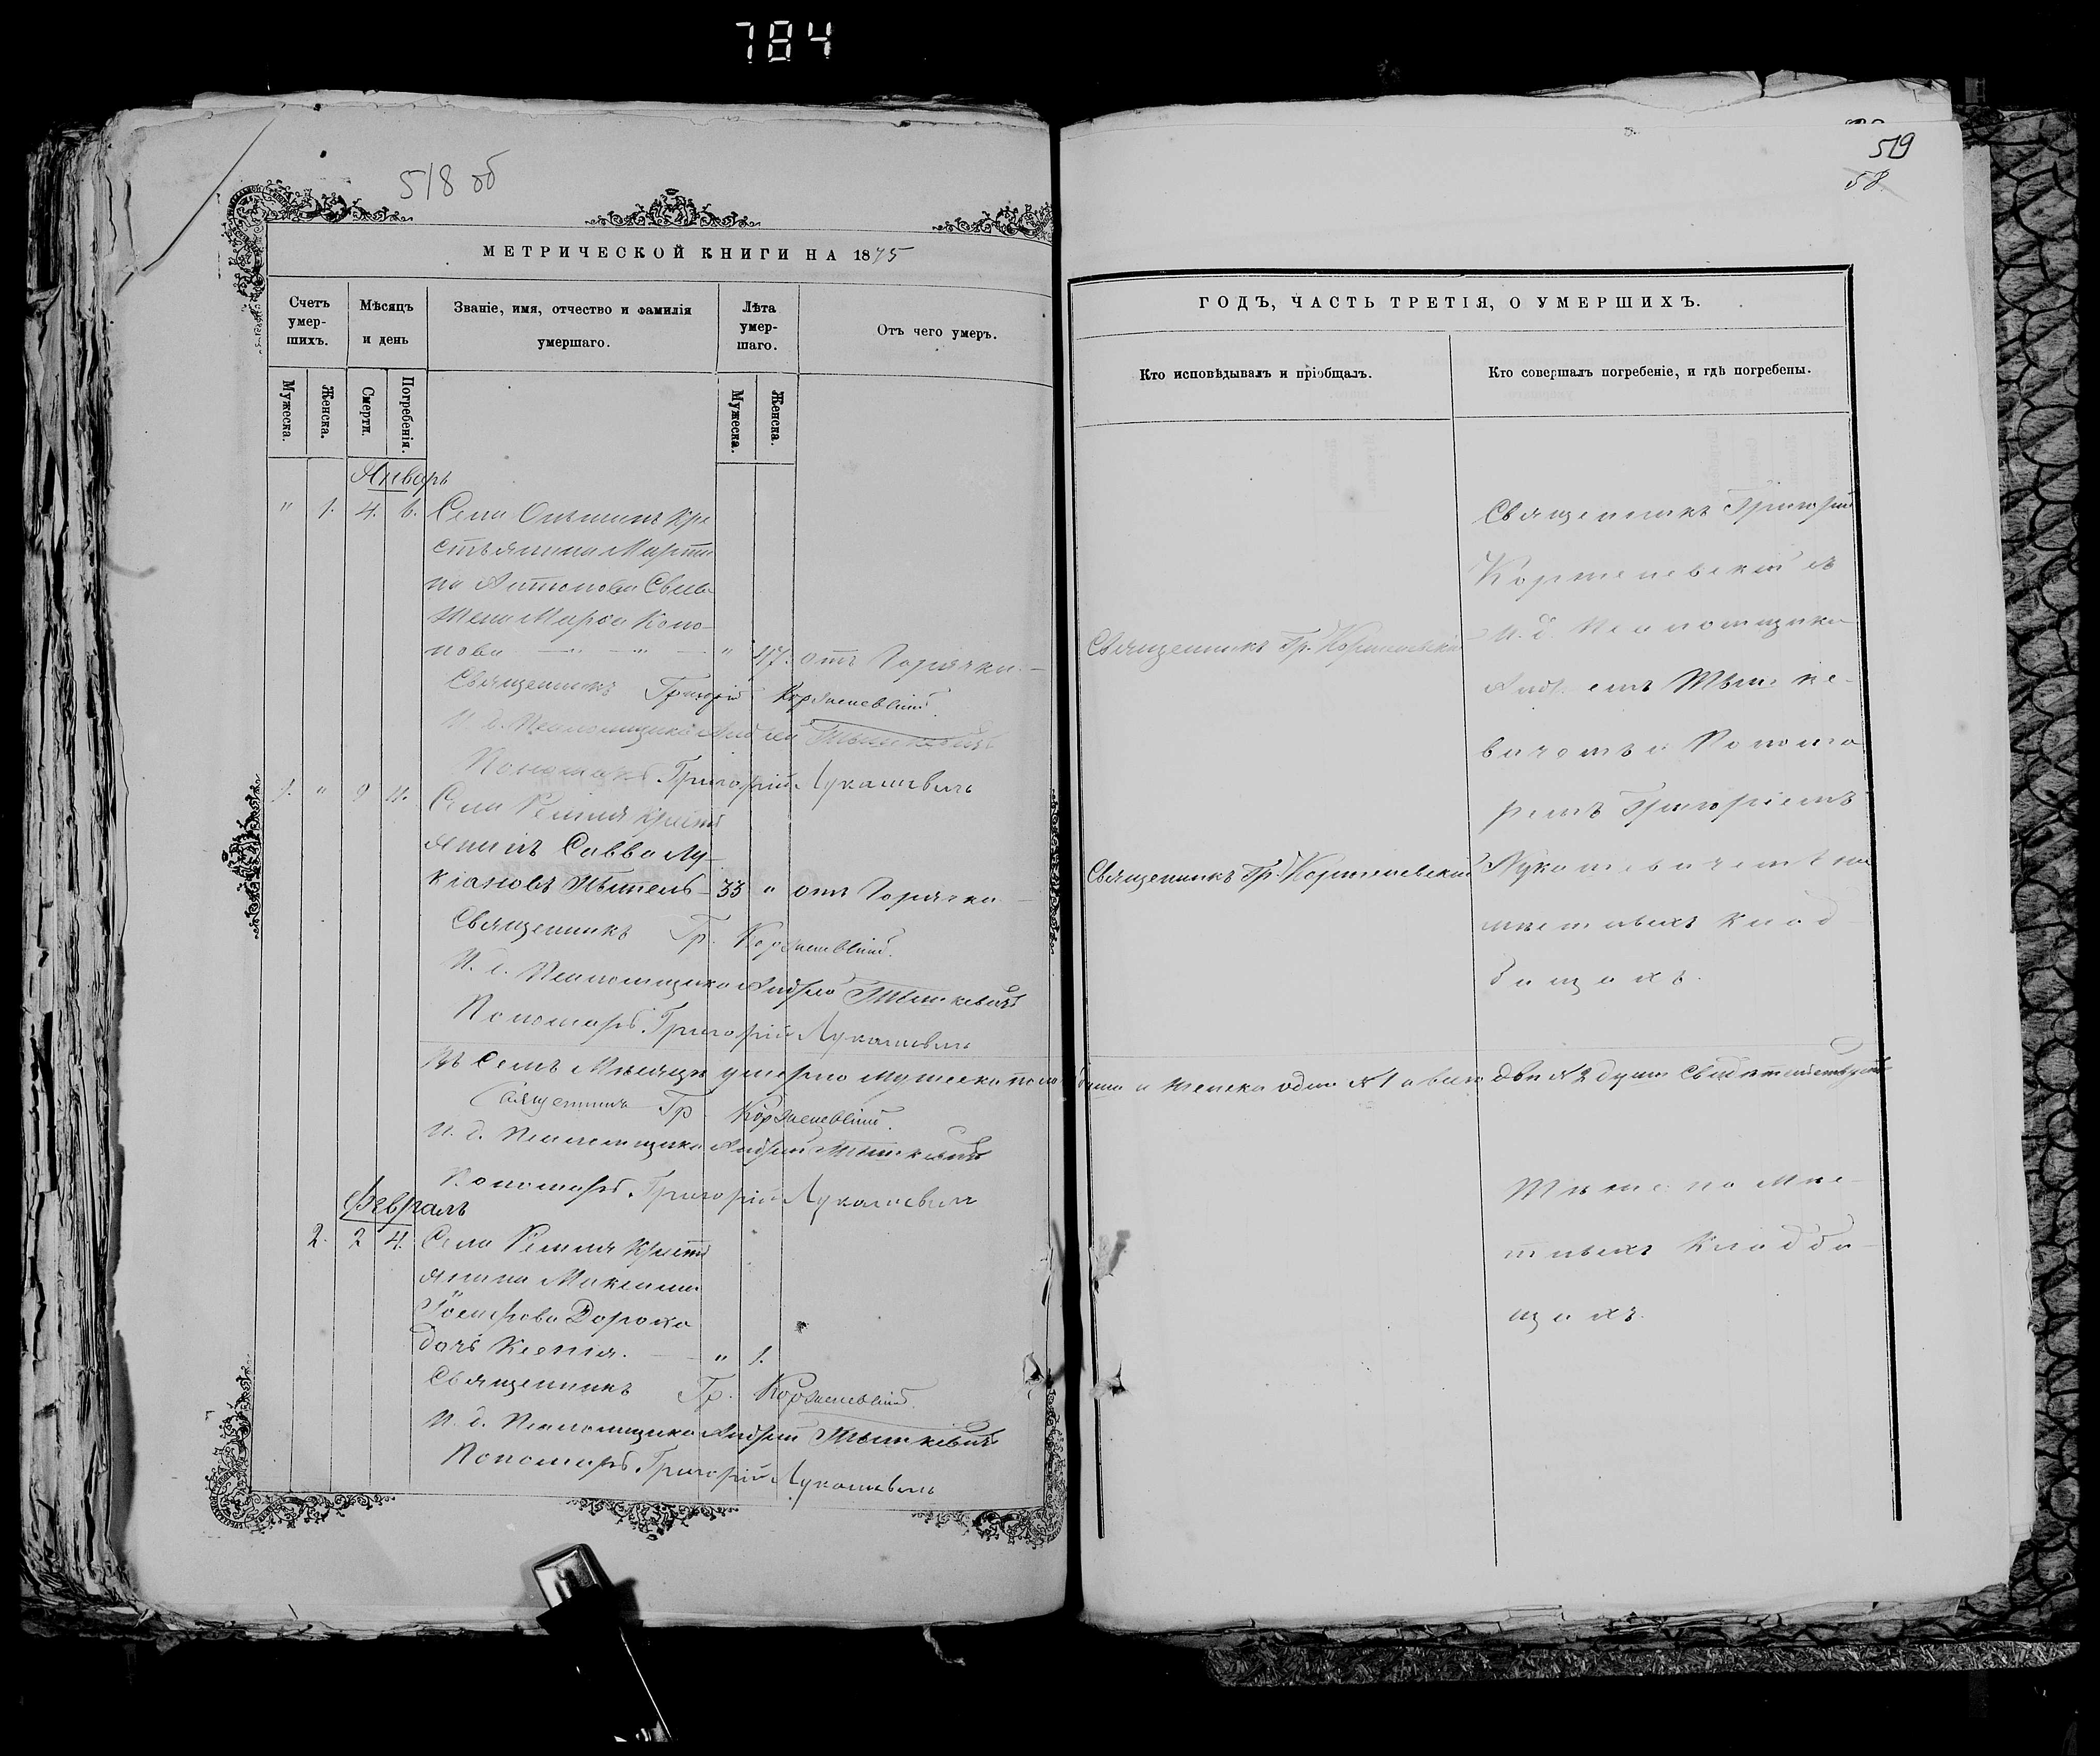 784
518 об
МЕТРИЧЕСКОЙ КНИГИ НА 1875
Счетъ умер-шихъ.
Мѣсяцъ и день
Званіе, имя, отчество и фамилія умершаго.
Лѣта умер-шаго.
Отъ чего умеръ.
Мужеска.
Женска.
Смерти.
Погребенія.
Мужеска.
Женска.
Январь
" 1. 4. 6. Села кре
стьянина Марти
на Антонова
жена Марфа Коно-
нова " 47. отъ Горячки
Священникъ Григорій Корженевскій.
И. д. Псаломщика Андрей Тышкевичъ
Пономарь Григорій Лукашевичъ
1. " 9 11. Села крест
янинъ Савва Лу-
кіановъ 33 " отъ Горячки
Священникъ Гр. Корженевскій.
И. д. Псаломщика Андрей Тышкевичъ
Пономарь Григорій Лукашевичъ
Въ семъ Мѣсяцѣ умерло мужеска пола
Священникъ Гр. Корженевскій.
И. д. Псаломщика Андрей Тышкевичъ
Пономарь Григорій Лукашевичъ
Февраль
2. 2 4. Села крест
янина Максима
Дороха
дочь Ксенія. " 1.
Священникъ Гр. Корженевскій.
И. д. Псаломщика Андрей Тышкевичъ
Пономарь Григорій Лукашевичъ
519
58
ГОДЪ, ЧАСТЬ ТРЕТІЯ, О УМЕРШИХЪ.
Кто исповѣдывалъ и пріобщалъ.
Кто совершалъ погребеніе, и гдѣ погребены.
Священникъ Гр. Корженевскій
Священникъ Гр. Корженевскій
Священникъ Григорій
Корженевскій съ
И. д. Псаломщика
Андреемъ Тышке-
вичемъ и Понома
ремъ Григоріемъ
Лукашевичемъ на
мѣстныхъ клад
бищахъ.
душа и женска одна № 1 а всего двѣ № 2 души
Тѣже на мѣс-
тныхъ кладби-
щахъ.